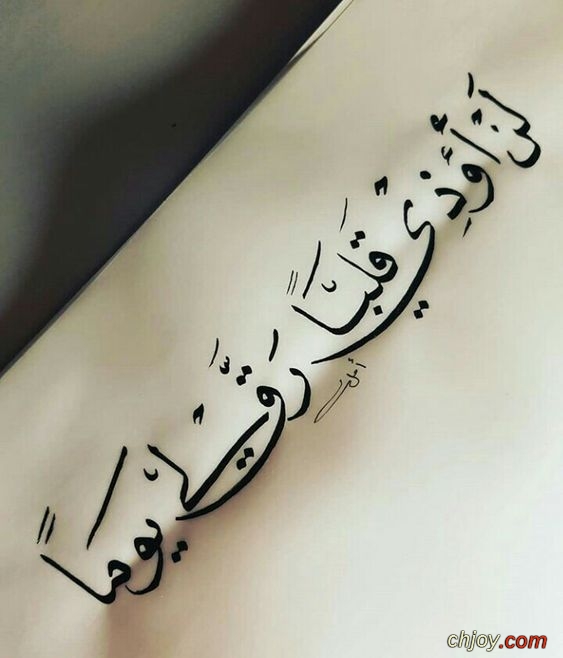 لَن أُوذِيَ قَلبًا رَقَّ لِي يَومًا
chjoy.com